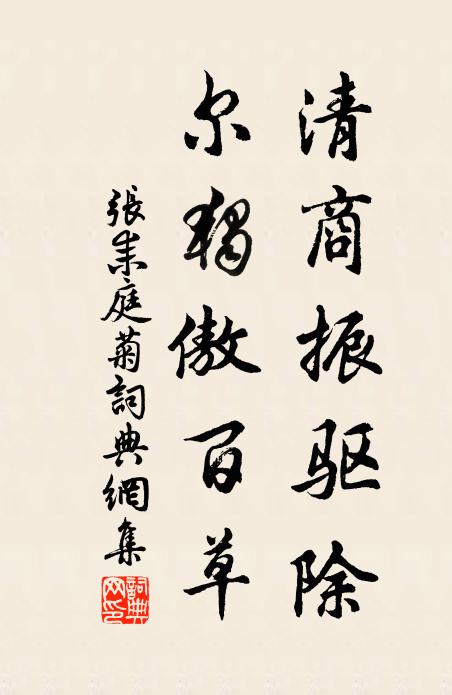 清商振驱除
尔独傲百草
張耒庭菊詞典網集
詞典网印